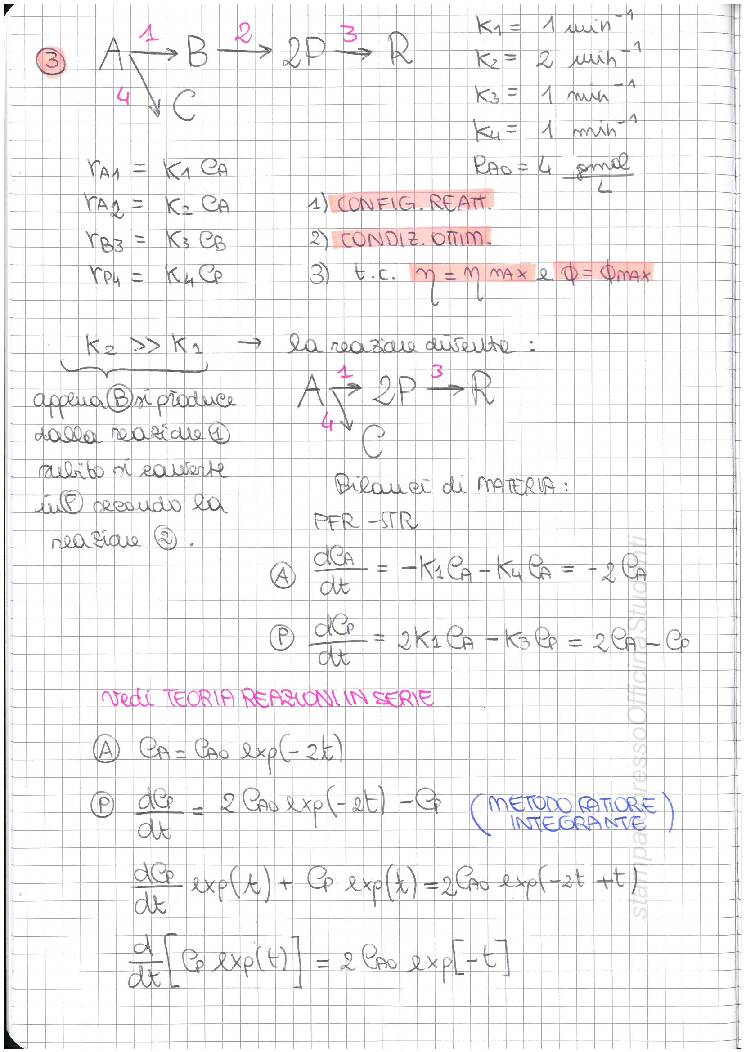 3 A 1→ B 2→ 2P 3→ R
4 C
K1 = 1 min⁻¹
K2 = 2 min⁻¹
K3 = 1 min⁻¹
K4 = 1 min⁻¹
CA0 = 4 gmol/L
rA1 = K1 CA
rA2 = K2 CA
rB3 = K3 CB
rP4 = K4 CP
1) CONFIG. REATT.
2) CONDIZ. OTTIM.
3) t.c. η = η MAX e ϕ = ϕMAX
K2 >> K1 → la reazione diventa :
appena B si produce
dalla reazione 1
subito si converte
in P secondo la
reazione 2.
A 1→ 2P 3→ R
4 C
Bilanci di MATERIA :
PFR - STR
A dCA/dt = -K1CA - K4CA = -2CA
P dCP/dt = 2K1CA - K3CP = 2CA - CP
Vedi TEORIA REAZIONI IN SERIE
A CA = CA0 exp(-2t)
P dCP/dt = 2CA0 exp(-2t) - CP (METODO FATTORE
INTEGRANTE)
dCP/dt exp(t) + CP exp(t) = 2CA0 exp(-2t+t)
d/dt [CP exp(t)] = 2CA0 exp[-t]